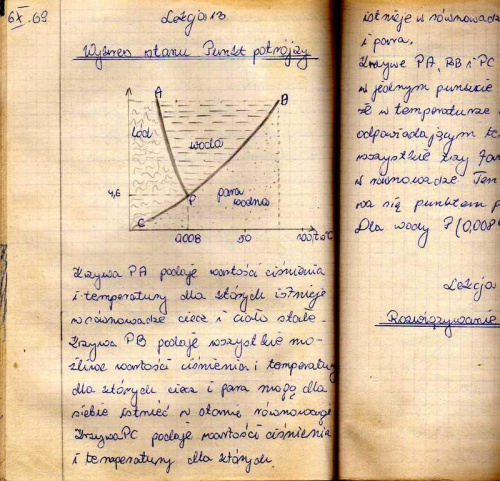 6 X. 69
Lekcja 13
Wykres stanu Punkt potrójny
A
B
lód
woda
4,6
P
para
wodna
C
0,008
50
100
t°C
Krzywa PA podaje wartości ciśnienia
i temperatury dla których istnieje
w równowadze ciecz i ciało stałe.
Krzywa PB podaje wszystkie mo-
żliwe wartości ciśnienia i temperatury
dla których ciecz i para mogą dla
siebie istnieć w stanie równowagi
Krzywa PC podaje wartości ciśnienia
i temperatury dla których
istnieje w równowadz
i para.
Krzywe PA, PB i PC
w jednym punkcie
że w temperaturze
odpowiadającym te
wszystkie trzy faz
w równowadze. Ten
wa się punktem p
Dla wody P (0,008
Lekcja
Rozwiązywanie